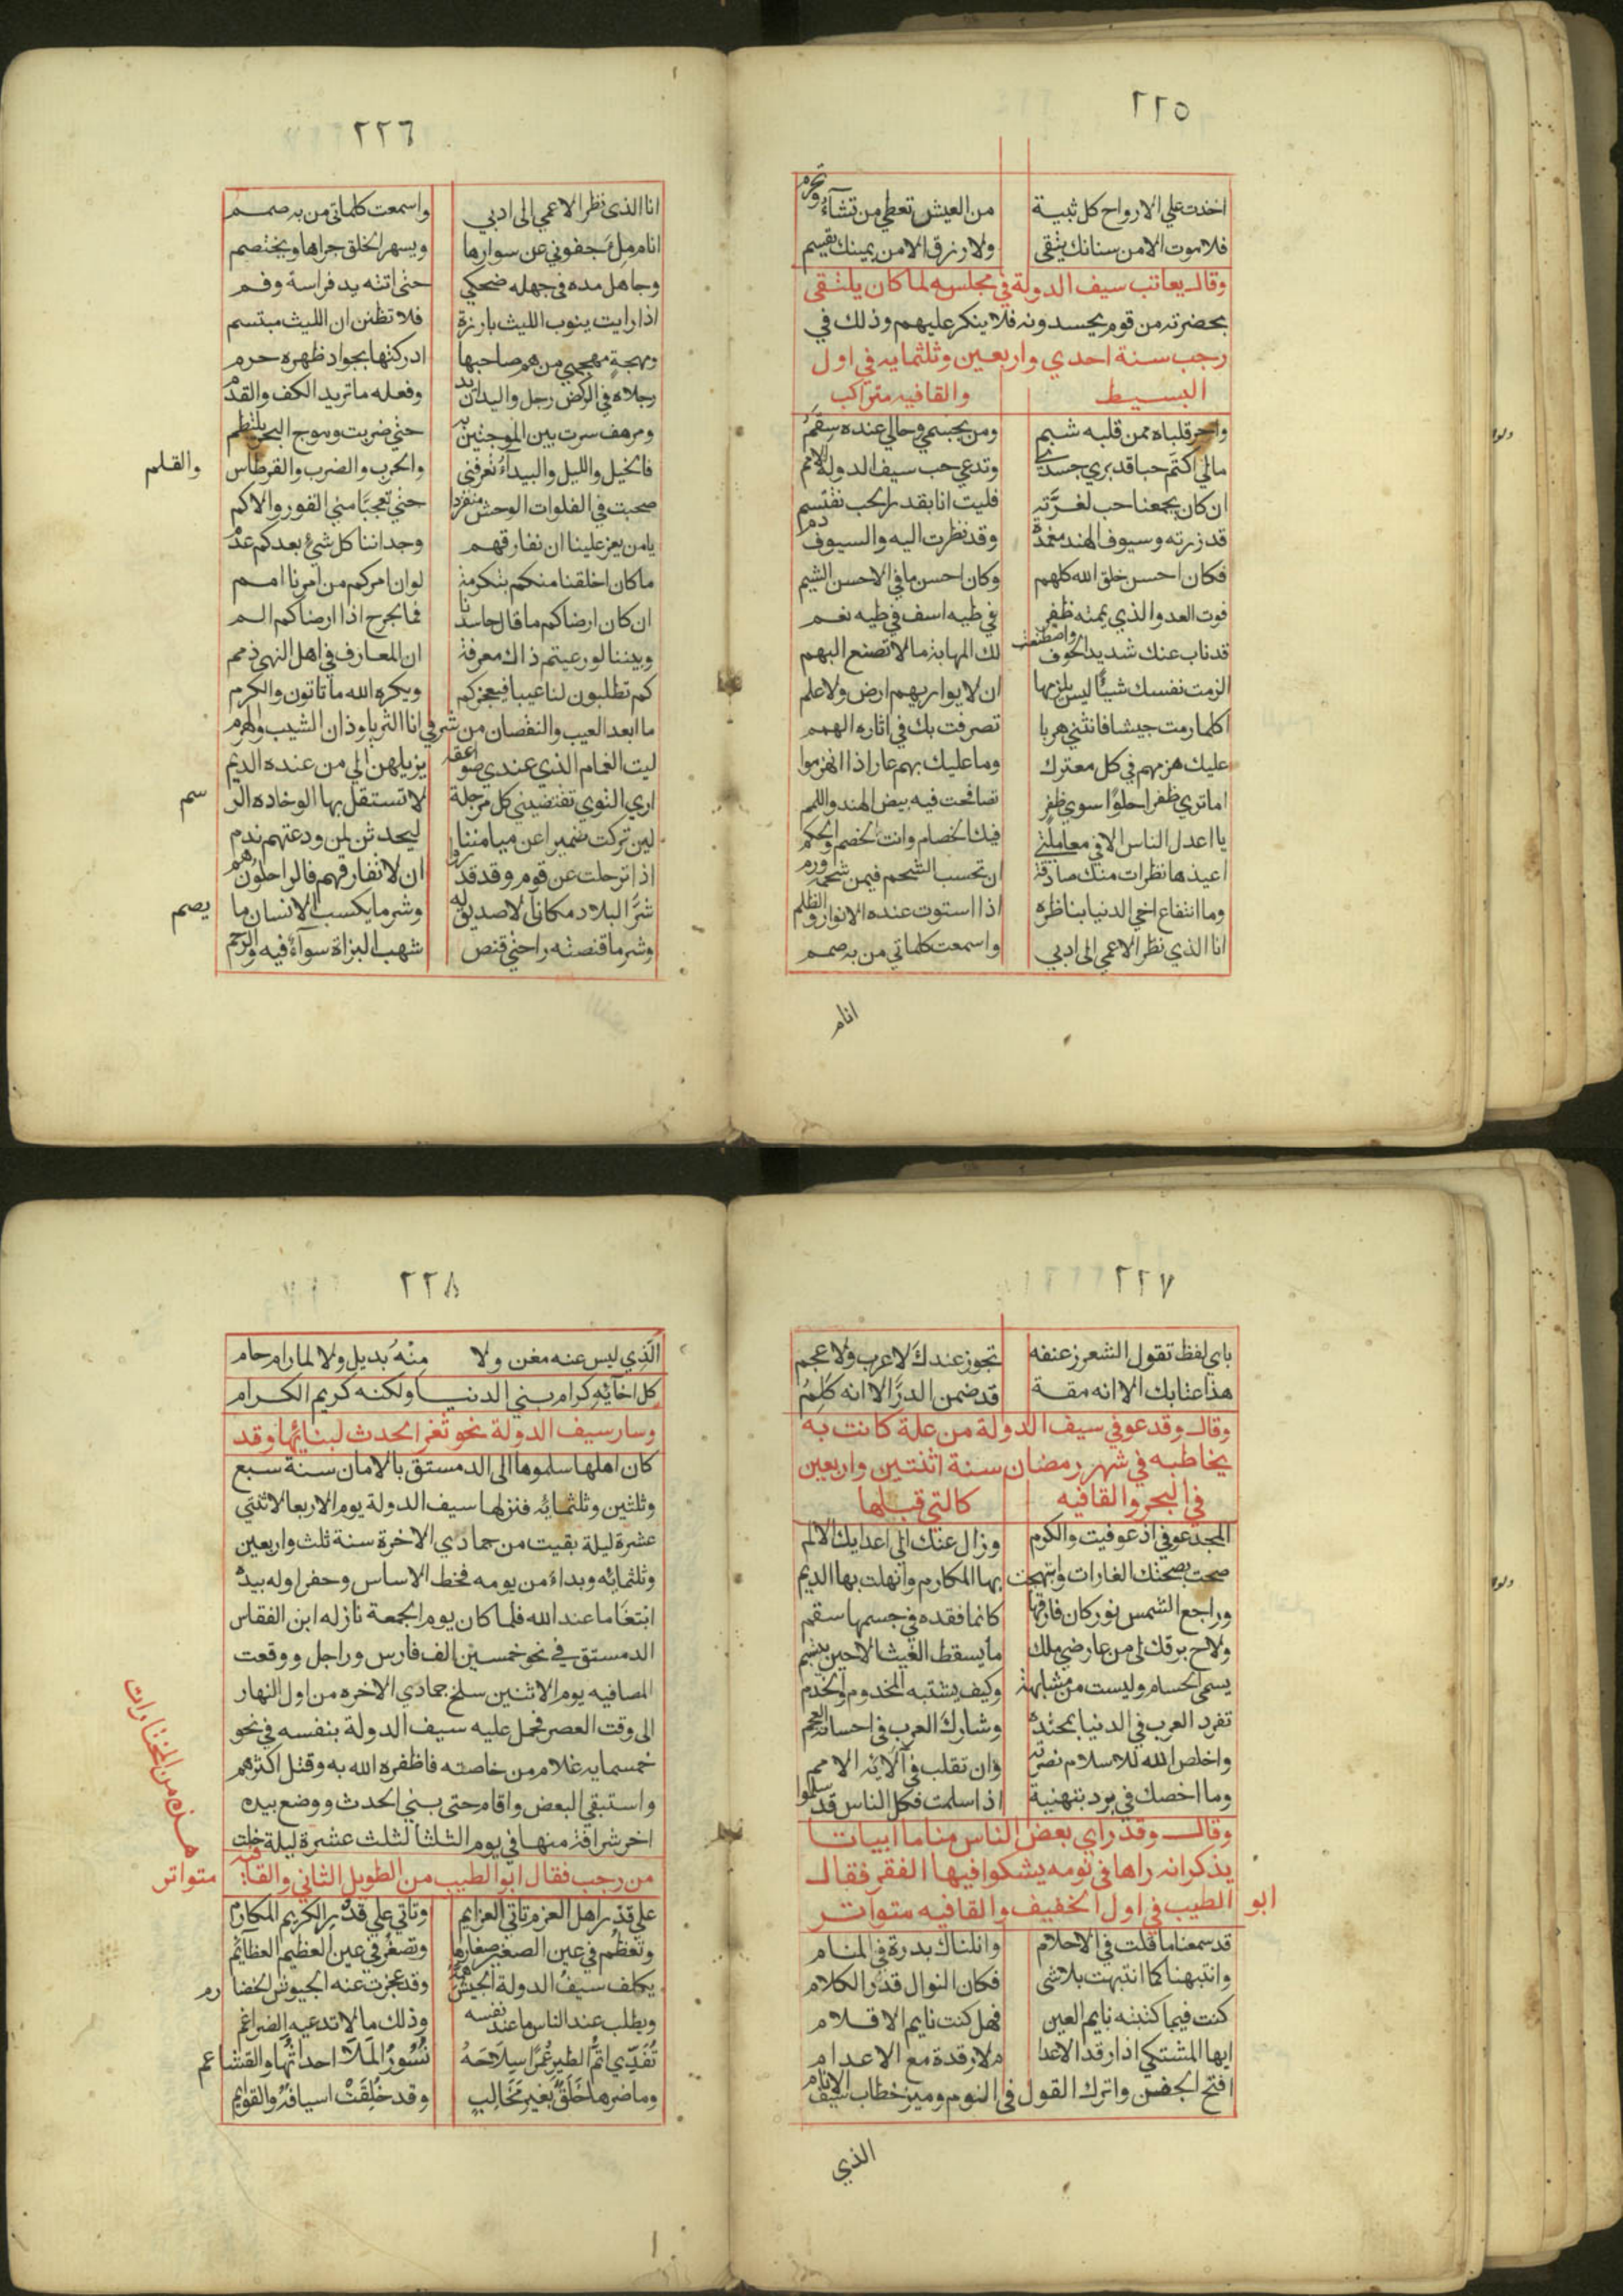 ٢٢٥
اخذت علي الارواح كل ثنية من العيش تعطي من تشآء وتحرم
فلا موت الا من سنانك يتقى ولا رزق الا من يمينك يقسم
وقال يعاتب سيف الدولة في مجلسه لما كان يلتقى
بحضرته من قوم يحسدونه فلا ينكر عليهم وذلك في
رجب سنة احدي واربعين وثلثمايه في اول
البسيط والقافيه متراكب
واحر قلباه ممن قلبه شبم ومن بجسمي وحالي عنده سقم
مالي اكتم حبا قد بري جسدي وتدعي حب سيف الدولة الامم
ان كان يجمعنا حب لغرته فليت انا بقدر الحب نقتسم
قد زرته وسيوف الهند مغمدة وقد نظرت اليه والسيوف دم
فكان احسن خلق الله كلهم وكان احسن ما في الاحسن الشيم
فوت العدو الذي يممته ظفر في طيه اسف في طيه نعم
قد ناب عنك شديد الخوف واصطنعت لك المهابة ما لا تصنع البهم
الزمت نفسك شيئا ليس يلزمها ان لا يواريهم ارض ولا علم
اكلما رمت جيشا فانثني هربا تصرفت بك في اثاره الهمم
عليك هزمهم في كل معترك وما عليك بهم عار اذا انهزموا
اما تري ظفرا حلوا سوي ظفر تصافحت فيه بيض الهند واللمم
يا اعدل الناس الا في معاملتي فيك الخصام وانت الخصم والحكم
اعيذها نظرات منك صادقة ان تحسب الشحم فيمن شحمه ورم
وما انتفاع اخي الدنيا بناظره اذا استوت عنده الانوار والظلم
انا الذي نظر الاعمي الى ادبي واسمعت كلماتي من به صمم
انام
٢٢٦
انا الذى نظر الاعمي الى ادبي واسمعت كلماتي من به صمم
انام ملء جفوني عن سوارها ويسهر الخلق جراها ويختصم
وجاهل مده في جهله ضحكي حتى اتته يد فراسة وفم
اذا رايت ينوب الليث بارزة فلا تظنن ان الليث مبتسم
ومهجة مهجتي من هم صاحبها ادركتها بجواد ظهره حرم
رجلاه في الركض رجل واليدان يد وفعله ما تريد الكف والقدم
ومرهف سرت بين الموجتين به حتي ضربت وموج البحر يلتطم
فالخيل والليل والبيدآء تعرفني والحرب والضرب والقرطاس والقلم
صحبت في الفلوات الوحش منفردا حتي تعجبا مني القور والاكم
يا من يعز علينا ان نفارقهم وجداننا كل شيء بعدكم عدم
ما كان اخلقنا منكم بتكرمة لو ان امركم من امرنا امم
ان كان ارضاكم ما قال حاسدنا فما لجرح اذا ارضاكم الم
وبيننا لو رعيتم ذاك معرفة ان المعارف في اهل النهى ذمم
كم تطلبون لنا عيبا فيعجزكم ويكره الله ما تاتون والكرم
ما ابعد العيب والنقصان من شرفي انا الثريا وذان الشيب والهرم
ليت الغمام الذي عندي صواعقه يزيلهن الي من عنده الديم
اري النوي تقتضيني كل مرحلة لا تستقل بها الوخاده الرسم
لين تركت ضميرا عن ميامننا ليحدثن لمن ودعتهم ندم
اذا ترحلت عن قوم وقد قدروا ان لا تفارقهم فالراحلون هم
شر البلاد مكان لا صديق له وشر ما يكسب الانسان ما يصم
وشر ما قنصته راحتي قنص شهب البزاة سوآء فيه والرخم
٢٢٧
باي لفظ تقول الشعر زعنفه تجوز عندك لا عرب ولا عجم
هذا عتابك الا انه مقة قد ضمن الدر الا انه كلم
وقال وقد عوفي سيف الدولة من علة كانت به
يخاطبه في شهر رمضان سنة اثنتين واربعين
في البحر والقافيه كالتي قبلها
المجد عوفي اذ عوفيت والكرم وزال عنك الى اعدايك الالم
صحت بصحتك الغارات وابتهجت بها المكارم وانهلت بها الديم
وراجع الشمس نور كان فارقها كانما فقده في جسمها سقم
ولاح برقك لى من عارضي ملك ما يسقط الغيث الا حين يبتسم
يسمى الحسام وليست من مشابهة وكيف يشتبه المخدوم والخدم
تفرد العرب في الدنيا بمحتده وشارك العرب في احسانه العجم
واخلص الله للاسلام نصرته وان تقلب في آلائه الامم
وما اخصك في برء بتهنية اذا سلمت فكل الناس قد سلموا
وقال وقد راي بعض الناس مناما ابيات
يذكر انه راها في نومه يشكوا فيها الفقر فقال
ابو الطيب في اول الخفيف والقافيه متواتر
قد سمعنا ما قلت في الاحلام وانلناك بدرة في المنام
وانتبهنا كما انتبهت بلاشى فكان النوال قدر الكلام
كنت فيما كتبته نايم العين فهل كنت نايم الاقلام
ايها المشتكي اذا رقد الاعدا م لا رقدة مع الاعدام
افتح الجفن واترك القول في النوم وميز خطاب سيف الانام
الذي
٢٢٨
الذي ليس عنه مغن ولا منه بديل ولا لما رام حام
كل اخآئه كرام بني الدنيا ولكنه كريم الكرام
وسار سيف الدولة نحو ثغر الحدث لبنائها وقد
كان اهلها سلموها الى الدمستق بالامان سنة سبع
وثلثين وثلثمائه فنزلها سيف الدولة يوم الاربعا لاثنتي
عشرة ليلة بقيت من جمادي الاخرة سنة ثلث واربعين
وثلثمائه وبداء من يومه فخط الاساس وحفر اوله بيده
ابتغآ ما عند الله فلما كان يوم الجمعة نازله ابن الفقاس
الدمستق في نحو خمسين الف فارس وراجل ووقعت
المصافيه يوم الاثنين سلخ جمادي الاخره من اول النهار
الى وقت العصر فحمل عليه سيف الدولة بنفسه في نحو
خمسمايه غلام من خاصته فاظفره الله به وقتل اكثرهم
واستبقي البعض واقام حتى بني الحدث ووضع بيده
اخر شرافة منها في يوم الثلثا لثلث عشرة ليلة خلت
من رجب فقال ابو الطيب من الطويل الثاني والقافيه متواتر
هذه من المختارات
علي قدر اهل العزم تاتي العزايم وتاتي علي قدر الكريم المكارم
وتعظم في عين الصغير صغارها وتصغر في عين العظيم العظائم
يكلف سيف الدولة الجيش همه وقد عجزت عنه الجيوش الخضارم
ويطلب عند الناس ما عند نفسه وذلك ما لا تدعيه الضراغم
تفدي اتم الطير عمرا سلاحه نسور الملا احداثها والقشاعم
وما ضرها خلق بغير مخالب وقد خلقت اسيافه والقوايم